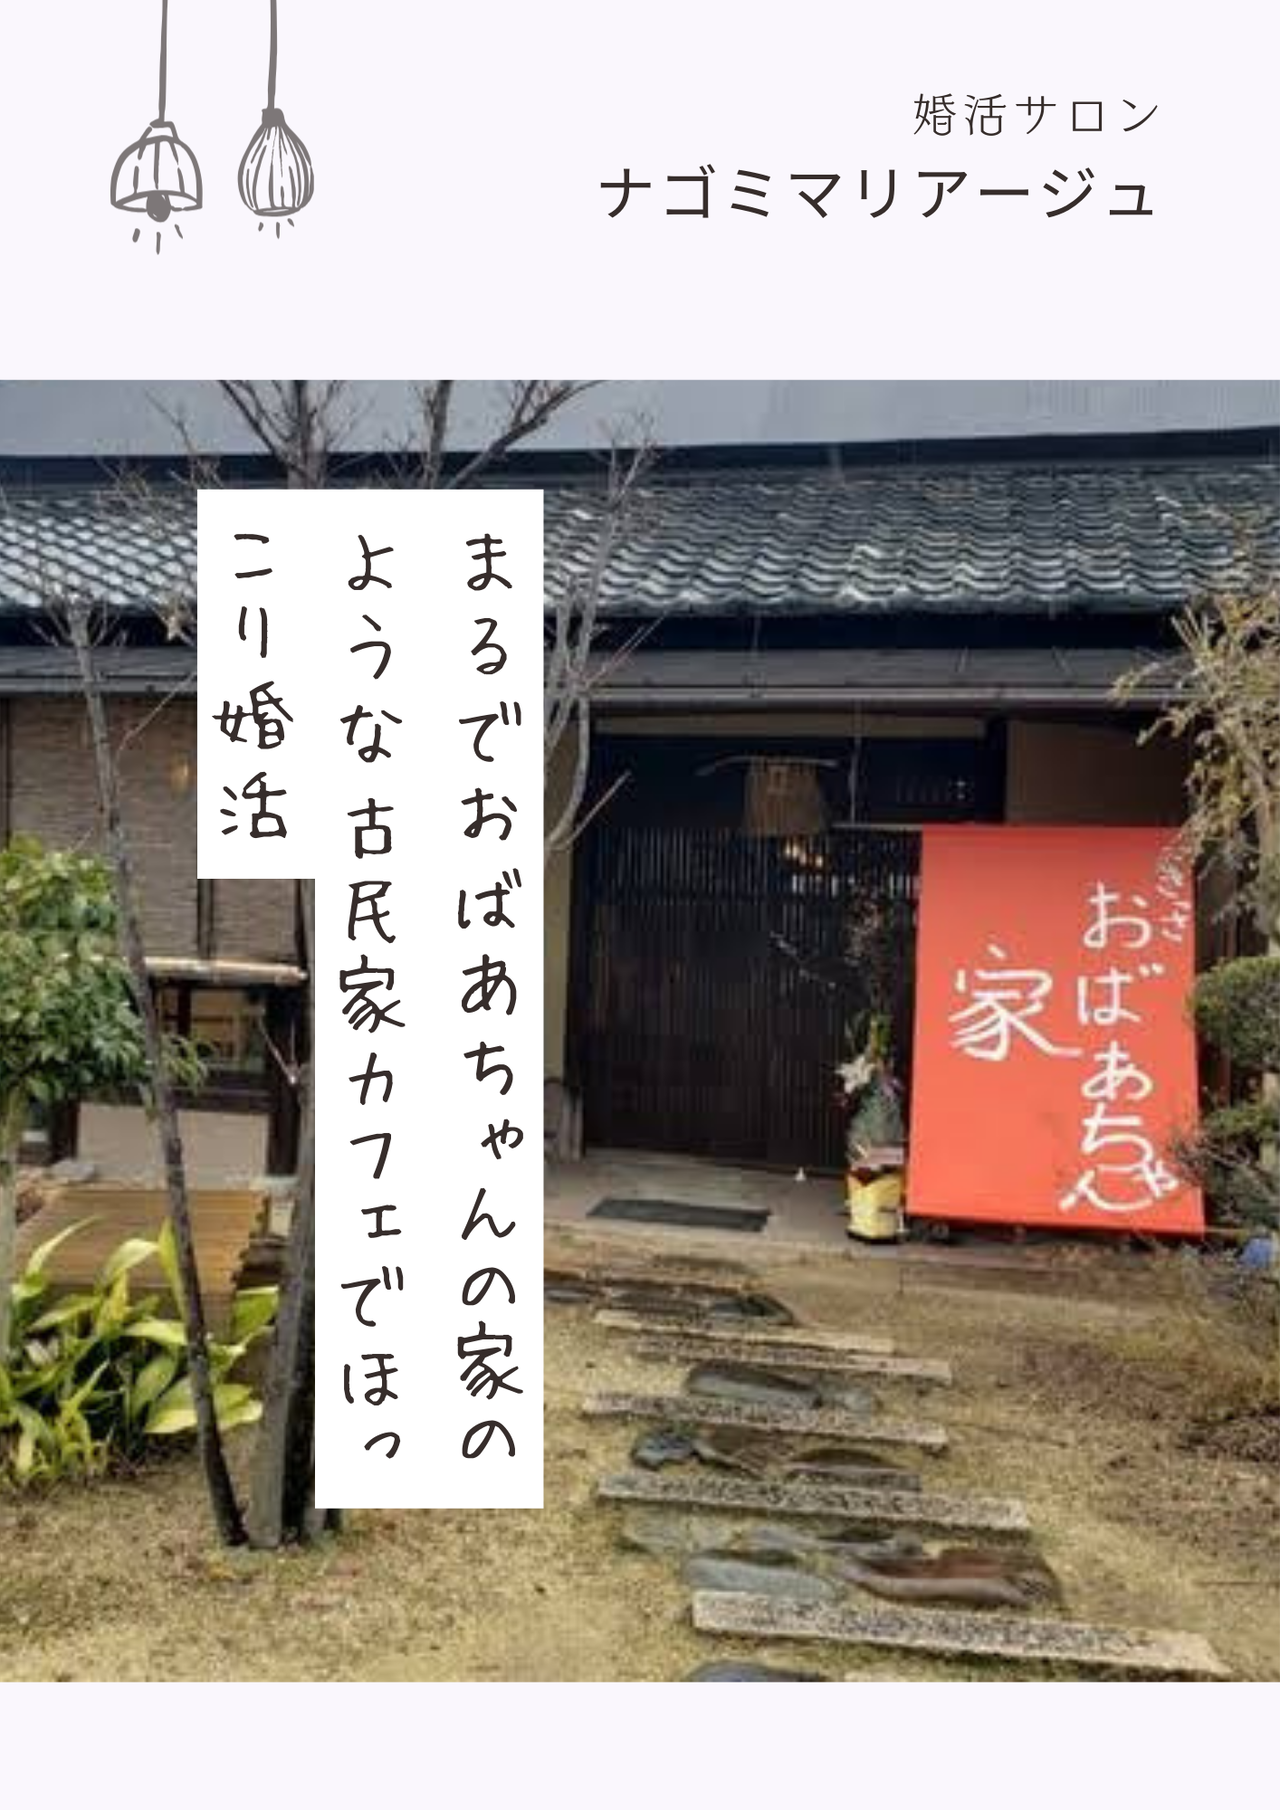 婚活サロン
ナゴミマリアージュ
まるでおばあちゃんの家の
ような古民家カフェでほっ
こり婚活
おばぁちゃん
家